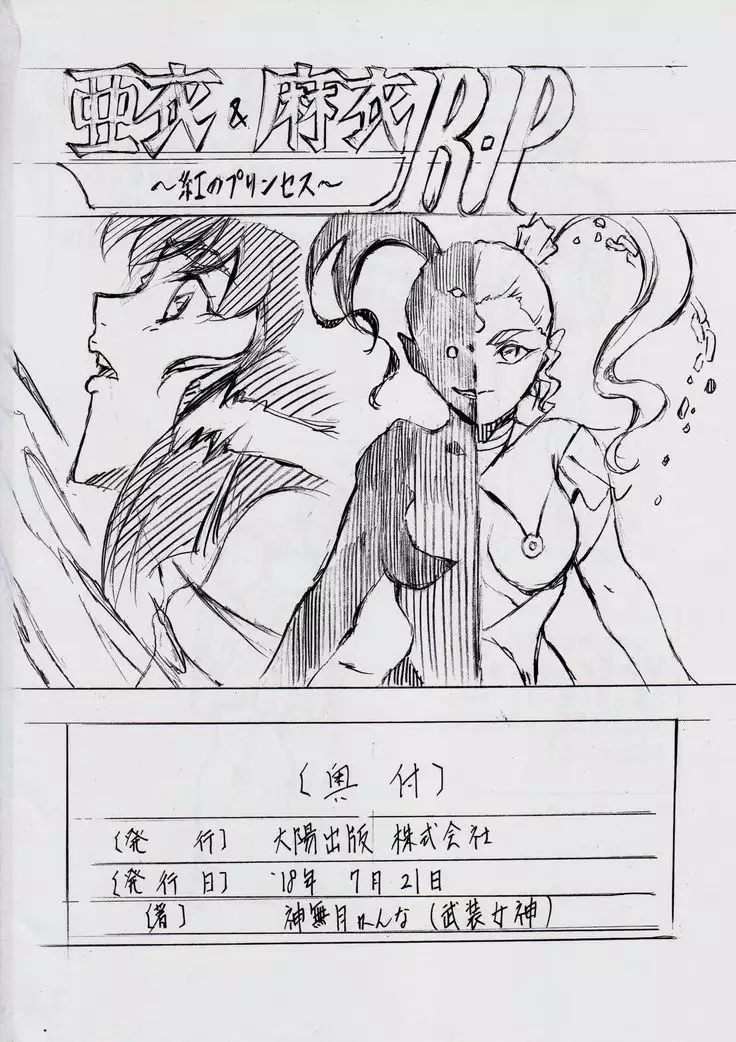 亜衣&麻衣R・P
～紅のプリンセス～
〔奥 付〕
〔発 行〕 大陽出版 株式会社
〔発行日〕 '18年 7月21日
〔著〕 神無月かんな(武装女神)